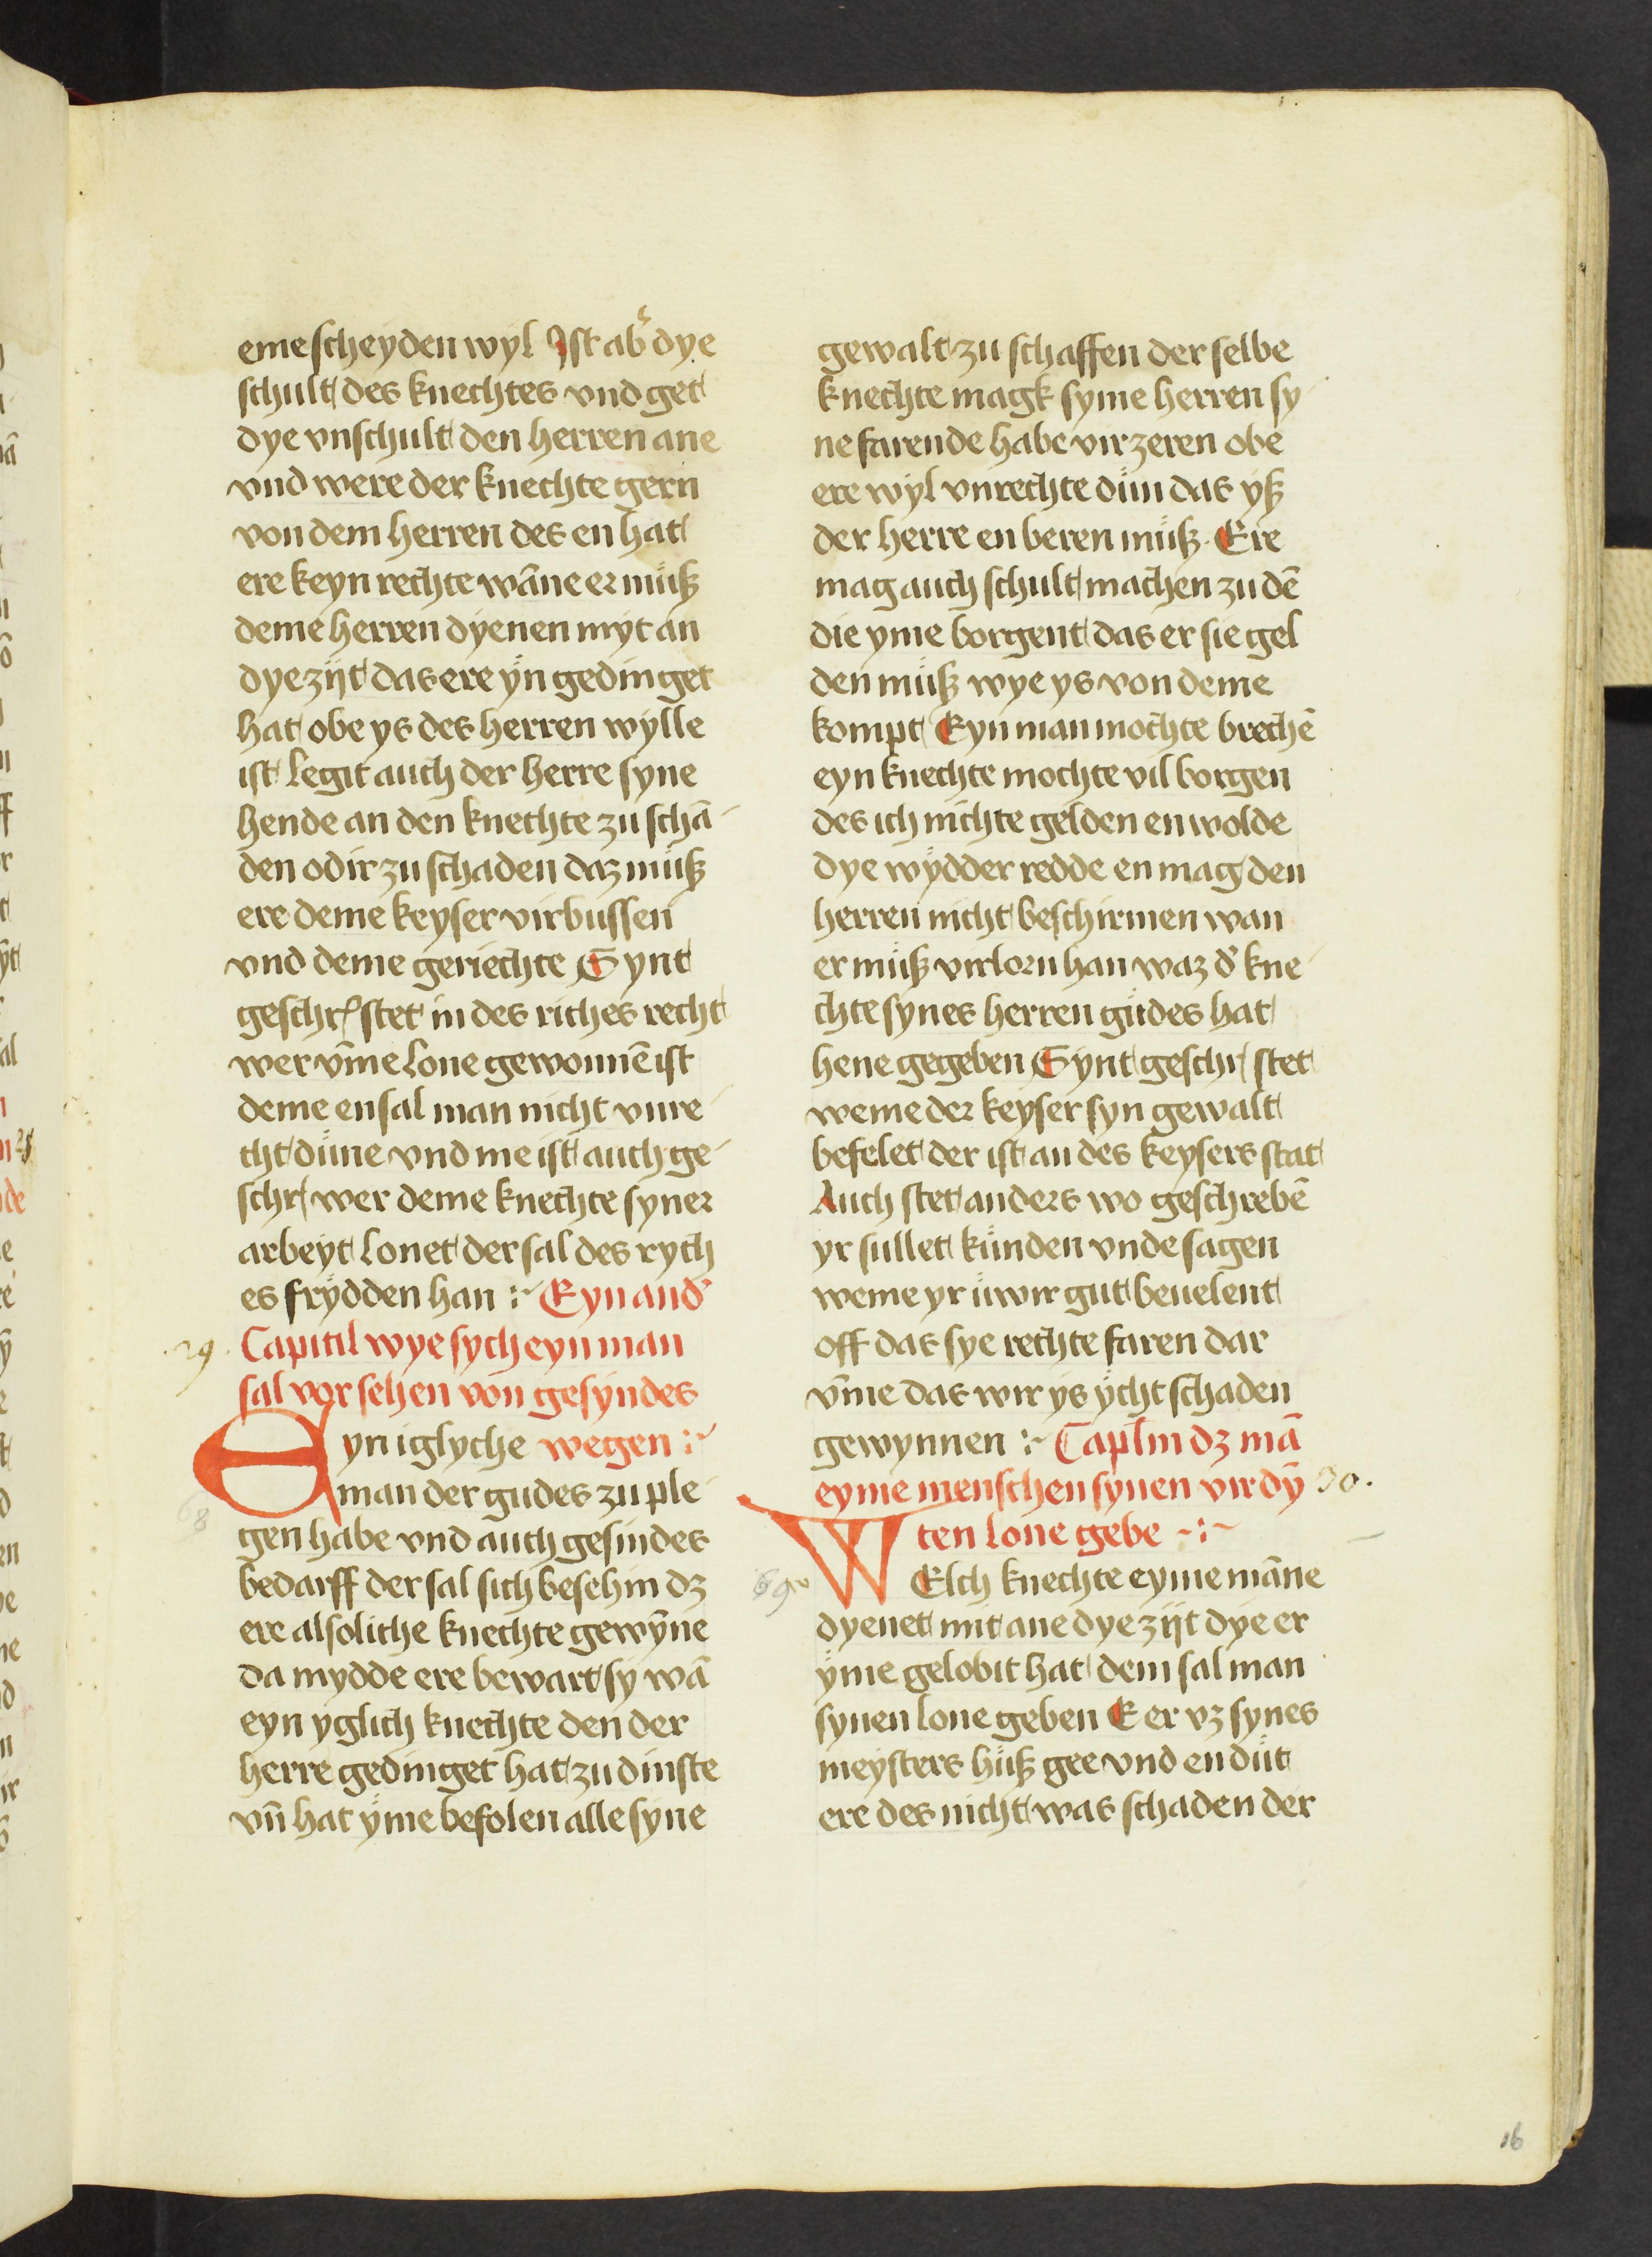 eme scheyden wyl Ist ab̉ dye
schult des knechtes vnd get
dye vnschult den herren ane
vnd were der knechte gern
von dem herren des en hat
ere keyn rechte wāne er muͤß
deme herren dyenen myt an
dye zijt das ere yn gedinget
hat obe ys des herren wylle
ist legit auch der herre syne
hende an den knechte zu scha-
den odir zu schaden daz muͤß
ere deme keyser virbussen
vnd deme geriechte Synt
geschr stet in des riches recht
wer vm̄e lone gewonnē ist
deme en sal man nicht vnre-
cht duͤne vnd me ist auch ge-
schr wer deme knechte syner
arbeyt lonet der sal des rych
es frydden han :~ Eyn and̉
29. Capitil wye sych eyn man
sal vor sehen von gesyndes
Eyn iglyche wegen :~
man der gudes zu ple-
68
gen habe vnd auch gesindes
bedarff der sal sich besehin dz
ere alsoliche knechte gewȳne
da mydde ere bewart sy wā
eyn yglich knechte den der
herre gedinget hat zu dinste
vn̄ hat yme befolen alle syne
gewalt zu schaffen der selbe
knechte magk syme herren sy-
ne farende habe virzeren obe
ere wyl vnrechte duͤn das yß
der herre en beren muͤß. Ere
mag auch schult machen zu dē
die yme borgent das er sie gel
den muͤß wye ys von deme
kompt Eyn man mochte brechē
eyn knechte mochte vil borgen
des ich nichte gelden en wolde
dye wydder redde en mag den
herren nicht beschirmen wan
er muͤß virlorn han waz d̉ kne-
chte synes herren guͤdes hat
hene gegeben Synt geschr stet
weme der keyser syn gewalt
befelet der ist an des keysers stat
Auch stet anders wo geschrebē
yr sullet kuͤnden vnde sagen
weme yr uͤwir gut beuelent
off das sye rechte faren dar
vm̄e das wir ys ycht schaden
gewynnen :~ Capl̄m dz mā
eyme menschen synen virdȳ 30.
ten lone gebe ~:~
69 WElch knechte eyme māne
dyenet mit ane dye zijt dye er
yme gelobit hat dem sal man
synen lone geben E er vz synes
meysters huͤß gee vnd en duͤt
ere des nicht was schaden der
16